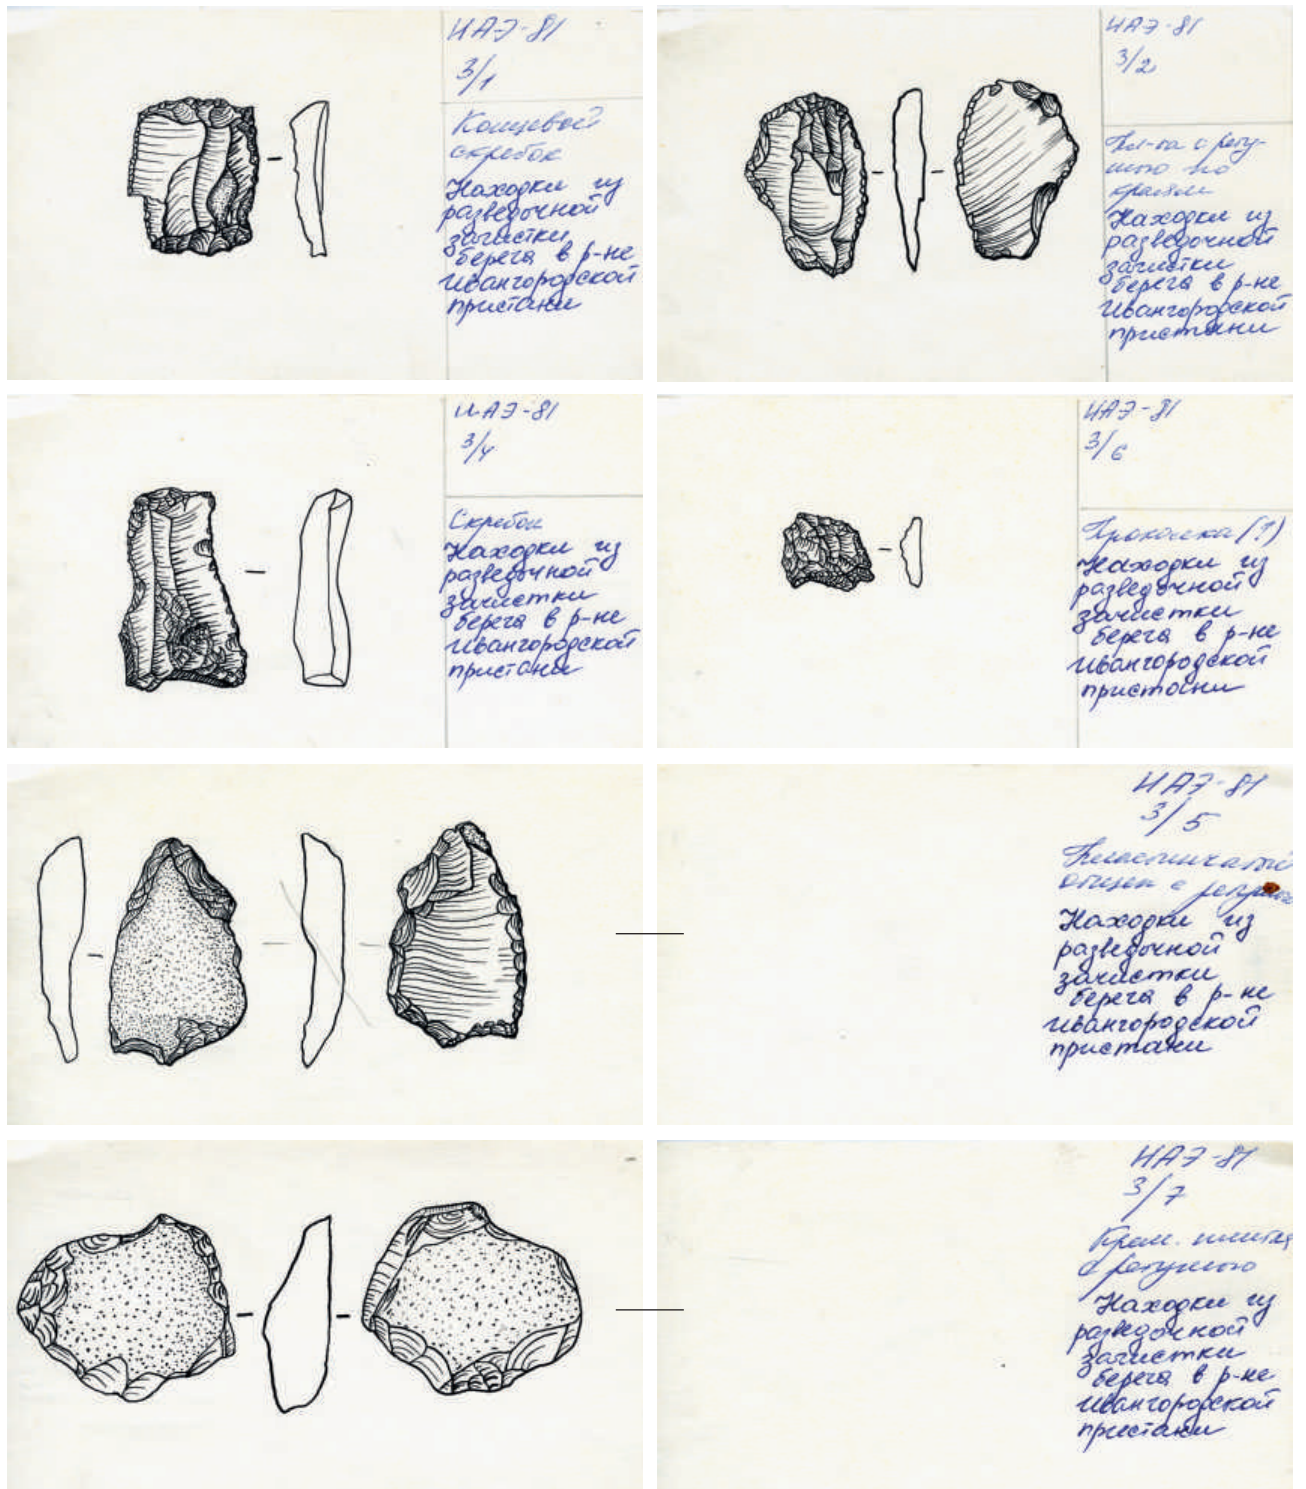 ИАЭ-81
3/1
Концевой
скребок
Находки из
разведочной
зачистки
берега в р-не
Ивангородской
пристани
ИАЭ-81
3/2
Пл-на с рету-
шью по
краям
Находки из
разведочной
зачистки
берега в р-не
Ивангородской
пристани
ИАЭ-81
3/4
Скребок
Находки из
разведочной
зачистки
берега в р-не
Ивангородской
пристани
ИАЭ-81
3/6
Проколка (?)
Находки из
разведочной
зачистки
берега в р-не
Ивангородской
пристани
ИАЭ-81
3/5
Пластинчатый
отщеп с ретушью
Находки из
разведочной
зачистки
берега в р-не
Ивангородской
пристани
ИАЭ-81
3/7
Крем. плитка
с ретушью
Находки из
разведочной
зачистки
берега в р-не
Ивангородской
пристани